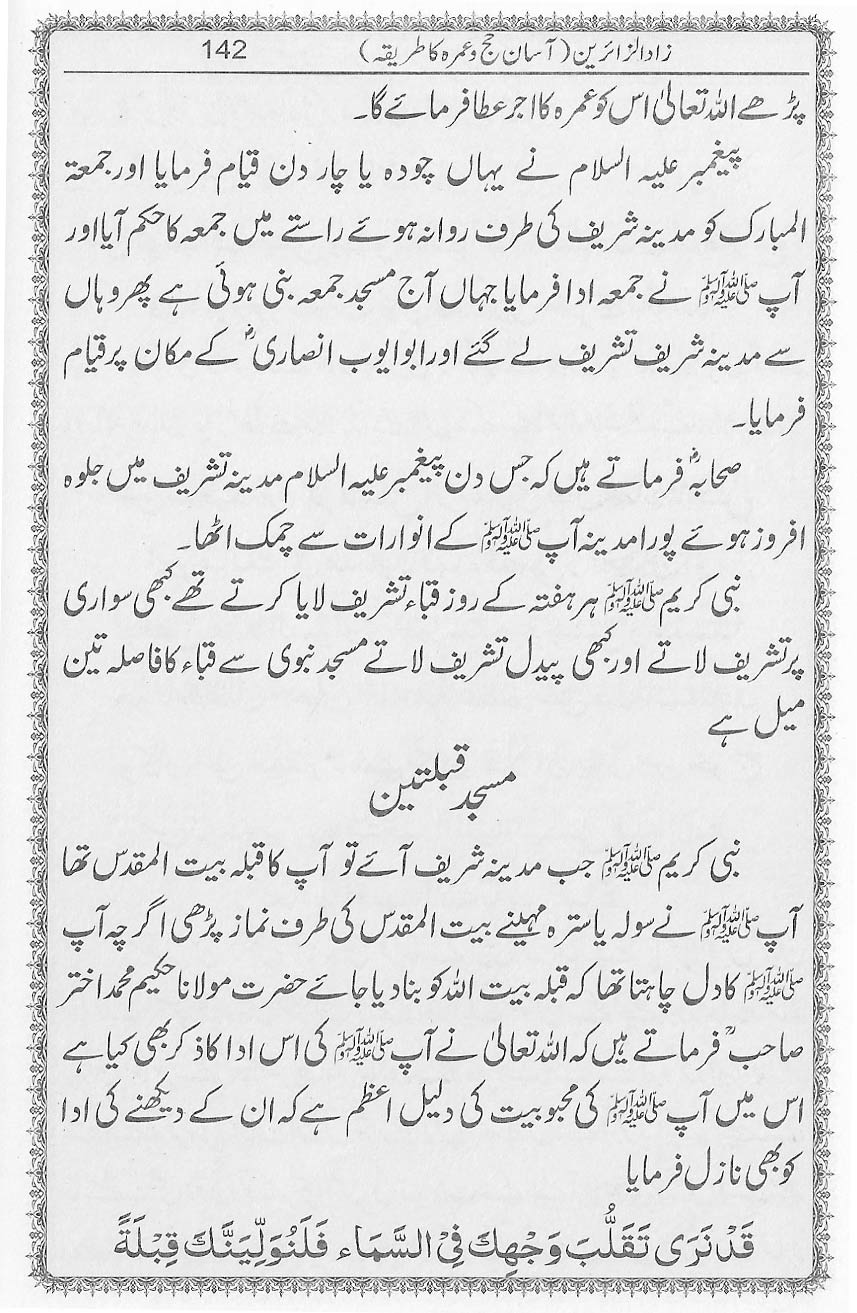 زاد الزائرین (آسان حج و عمرہ کا طریقہ) 142
پڑھے اللہ تعالیٰ اس کو عمرہ کا اجر عطا فرمائے گا۔
پیغمبر علیہ السلام نے یہاں چودہ یا چار دن قیام فرمایا اور جمعۃ
المبارک کو مدینہ شریف کی طرف روانہ ہوئے راستے میں جمعہ کا حکم آیا اور
آپ ﷺ نے جمعہ ادا فرمایا جہاں آج مسجد جمعہ بنی ہوئی ہے پھر وہاں
سے مدینہ شریف تشریف لے گئے اور ابو ایوب انصاریؓ کے مکان پر قیام
فرمایا۔
صحابہؓ فرماتے ہیں کہ جس دن پیغمبر علیہ السلام مدینہ تشریف میں جلوہ
افروز ہوئے پورا مدینہ آپ ﷺ کے انوارات سے چمک اٹھا۔
نبی کریم ﷺ ہر ہفتہ کے روز قباء تشریف لایا کرتے تھے کبھی سواری
پر تشریف لاتے اور کبھی پیدل تشریف لاتے مسجد نبوی سے قباء کا فاصلہ تین
میل ہے
مسجد قبلتین
نبی کریم ﷺ جب مدینہ شریف آئے تو آپ کا قبلہ بیت المقدس تھا
آپ ﷺ نے سولہ یا سترہ مہینے بیت المقدس کی طرف نماز پڑھی اگرچہ آپ
ﷺ کا دل چاہتا تھا کہ قبلہ بیت اللہ کو بنا دیا جائے حضرت مولانا حکیم محمد اختر
صاحبؒ فرماتے ہیں کہ اللہ تعالیٰ نے آپ ﷺ کی اس ادا کا ذکر بھی کیا ہے
اس میں آپ ﷺ کی محبوبیت کی دلیل اعظم ہے کہ ان کے دیکھنے کی ادا
کو بھی نازل فرمایا
قَدْ نَرَی تَقَلُّبَ وَجْهِكَ فِیْ السَّمَاء فَلَنُوَلِّیَنَّكَ قِبْلَةً